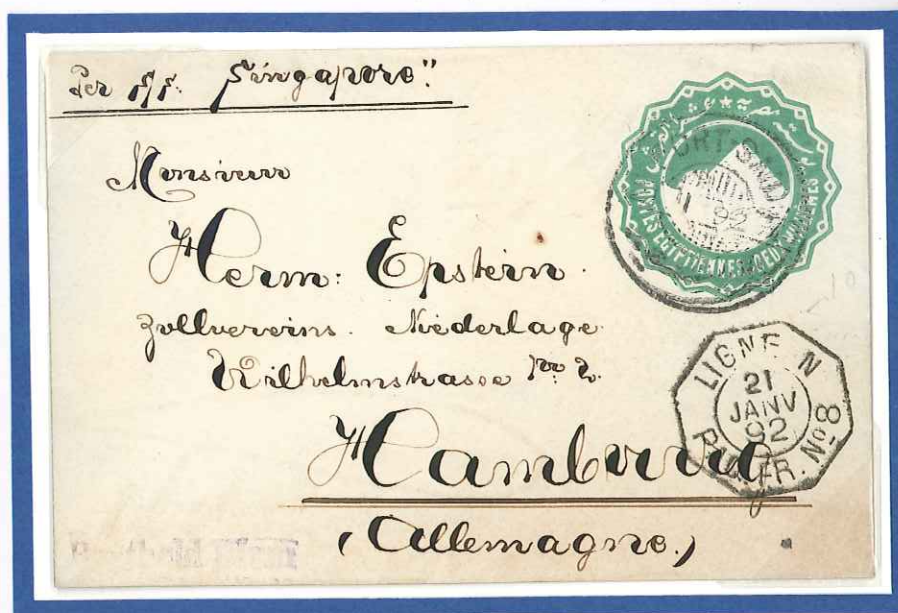 Per S/S. "Singapore"
Monsieur
Herm: Epstein.
Zollvereins. Niederlage
Wilhelmstrasse No 2.
Hamburg
(Allemagne.)
POSTES EGYPTIENNES DEUX MILLIEMES
PORT-SAID
92
LIGNE N
21
JANV
92
PAQ. FR. No 8
10